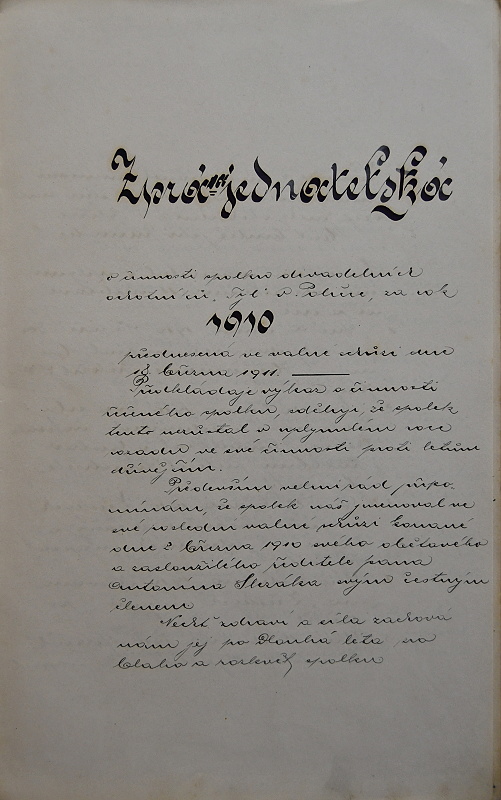 Zpráva jednatelská
o činnosti spolku divadelních
ochotníků "Tyl" v Polici, za rok
1910
přednesená ve valné schůzi dne
18. června 1911.
Předkládaje výkaz o činnosti
řečeného spolku, sděluji, že spolek
tento neustal v uplynulém roce
vzadu ve své činnosti proti letům
dřívějším.
Především velmi rád připo-
mínám, že spolek náš jmenoval ve
své poslední valné schůzi konané
dne 2. června 1910 svého obětavého
a zasloužilého ředitele pana
Antonína Slezáka svým čestným
členem
Nechť zdraví a síla zachová
nám jej po dlouhá léta na
blaho a rozkvět spolku